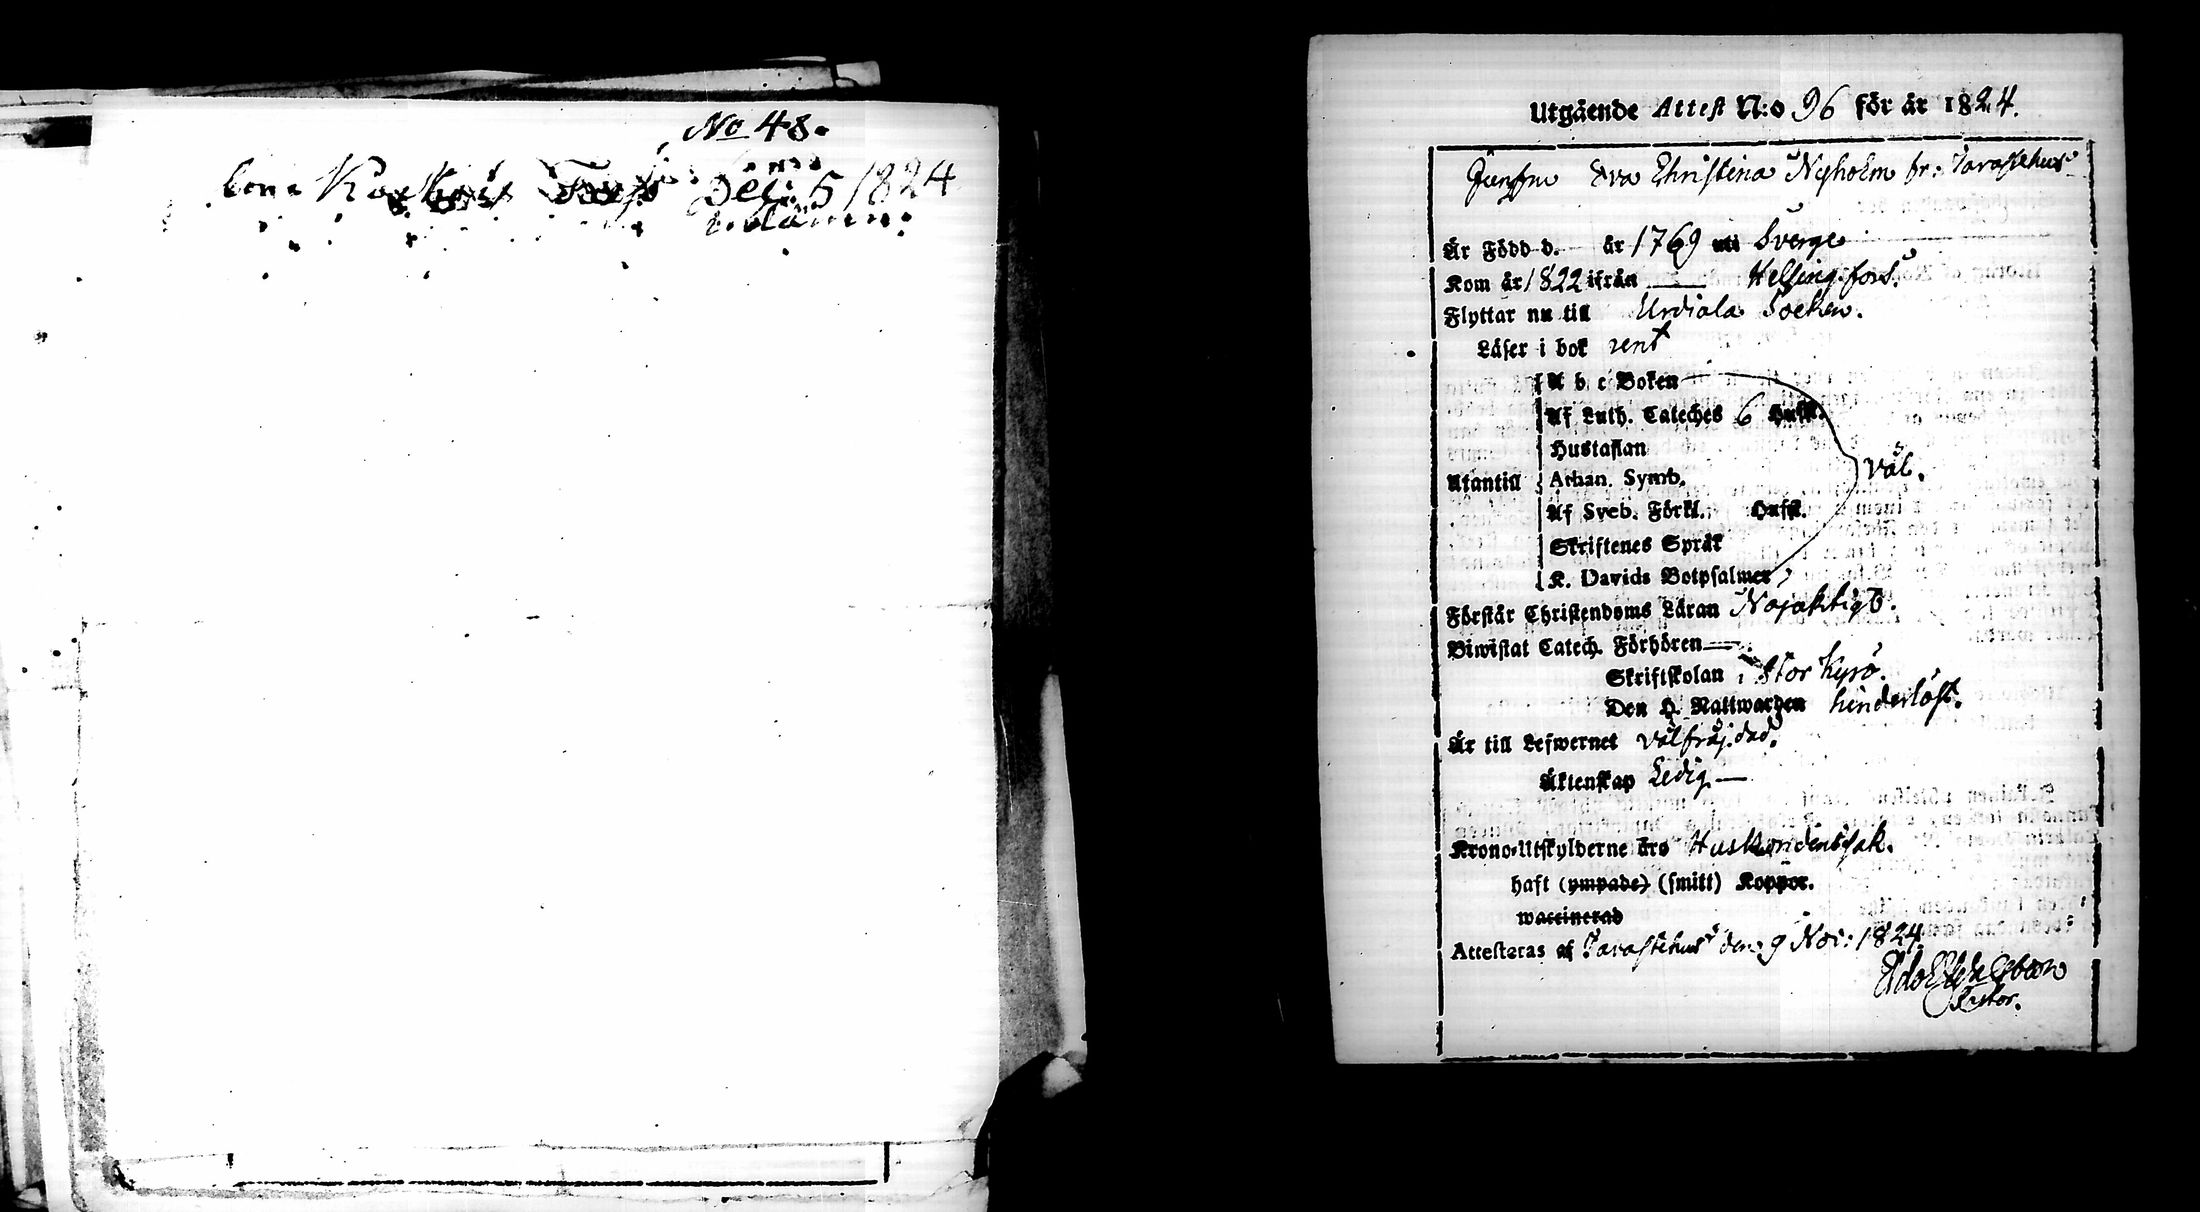 No 48.
Dec: 5 1824
Utgående Attest N:o 96 för år 1824.
Jungfru Eva Christina Nyholm fr: Tavastehus
Är Född d. — år 1769 uti Sverge
Kom år 1822 ifrån — Helsingfors.
Flyttar nu till Urdiala Socken.
Läser i bok rent
A b c Boken
Af Luth. Cateches 6 Hufst.
Hustaflan
Utantill Athan. Symb. väl.
Af Sveb. Förkl. Hufst.
Skriftenes Språk
K. Davids Botpsalmer
Förstår Christendoms Läran Nojaktigt.
Biwistat Catech. Förhören —
Skriftskolan i Stor Kyro.
Den H. Nattwarden hinderlöst.
Är till Lefwernet välfräjdad.
Äktenskap Ledig —
Krono-Utskylderne äro
haft (ympade) (smitt) Koppor.
waccinerad
Attesteras af Tavastehus den 9 Nov: 1824.
Pastor.